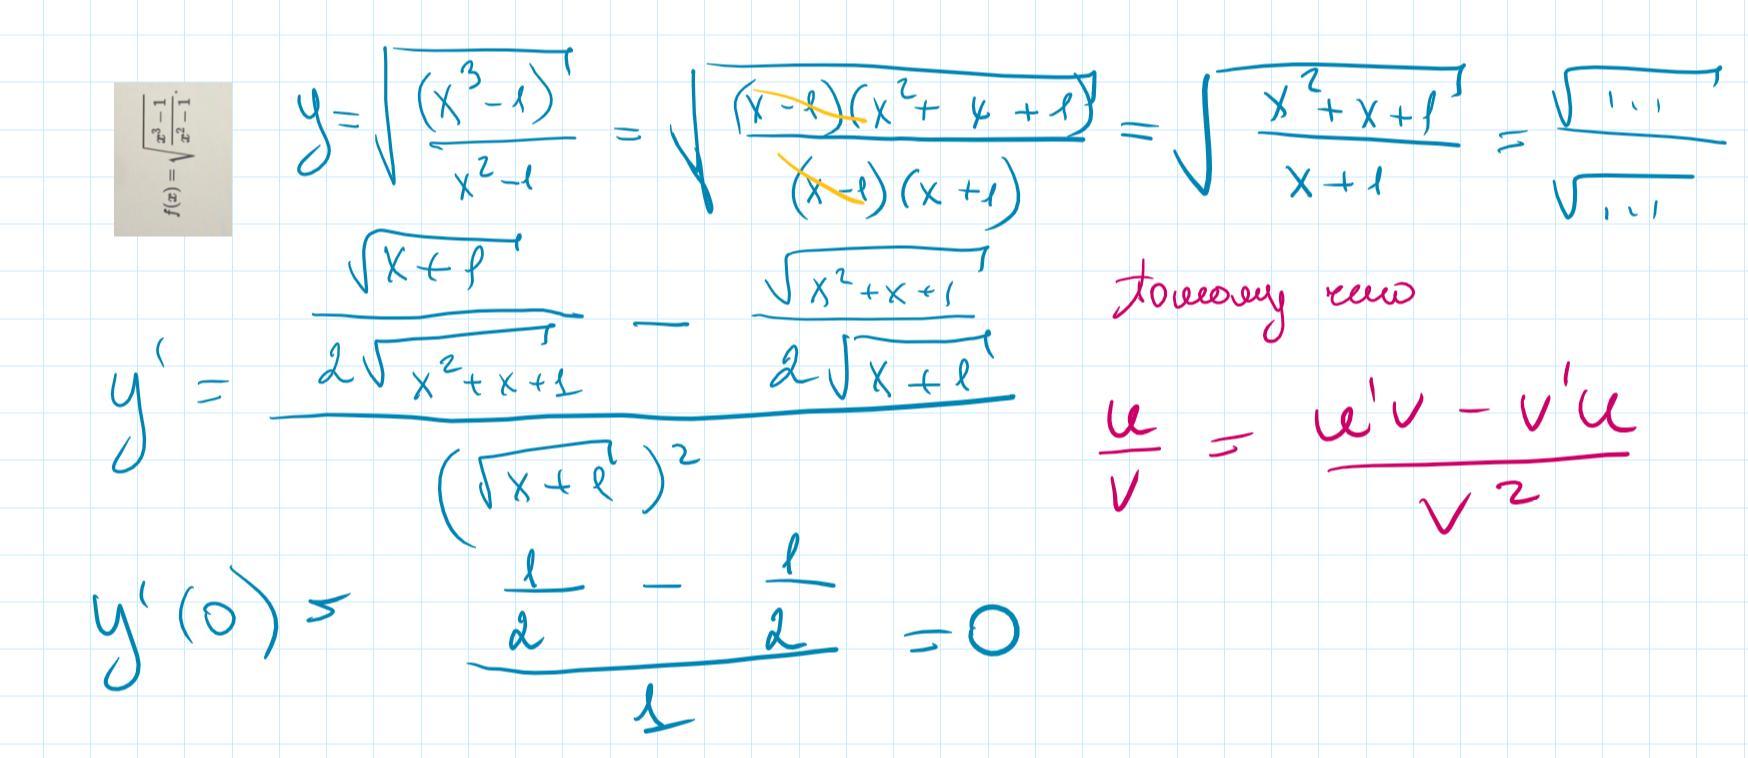 f(x) = √((x³ − 1)/(x² − 1)).
y = √((x³ − 1)/(x² − 1)) = √((x − 1)(x² + x + 1)/((x − 1)(x + 1))) = √((x² + x + 1)/(x + 1)) = √.../√...
y' = (√(x + 1)/(2√(x² + x + 1)) − √(x² + x + 1)/(2√(x + 1)))/(√(x + 1))²
потому что
u/v = (u'v − v'u)/v²
y'(0) = (1/2 − 1/2)/1 = 0